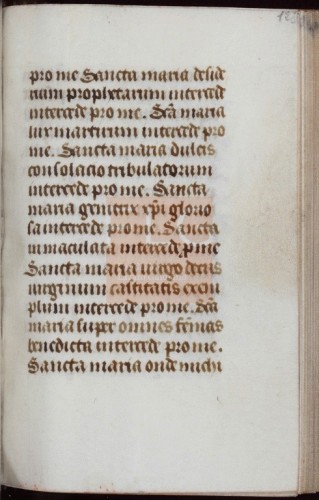 pro me Sancta maria deside
rium prophetarum intercede
intercede pro me. Scā maria
lux martirum intercede pro
me. Sancta maria dulcis
consolacio tribulatorum
intercede pro me. Sancta
maria genitrix xp̄i glorio
sa intercede pro me. Sancta
inmaculata intercede p̱ me
Sancta maria uirgo decus
uirginum castitatis exem
plum intercede pro me. Scā
maria super omnes fēinas
benedicta intercede pro me.
Sancta maria onde michi